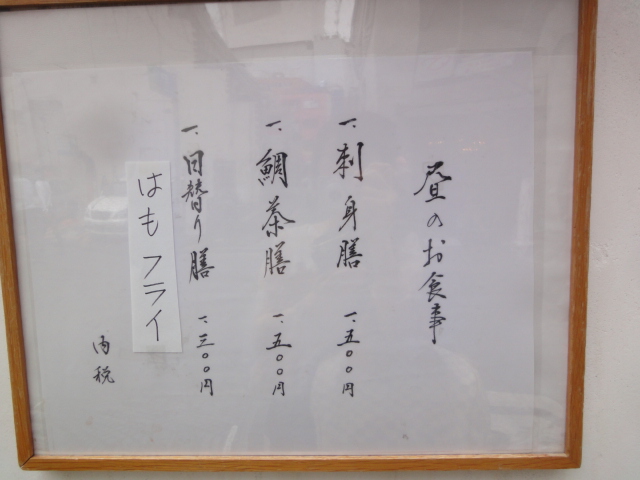 昼のお食事
一、刺身膳 一、五〇〇円
一、鯛茶膳 一、五〇〇円
一、日替り膳 一、三〇〇円
はもフライ
内税